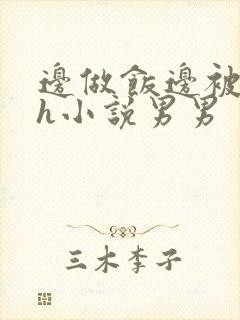 邊做飯邊被
h小說男男
三木李子